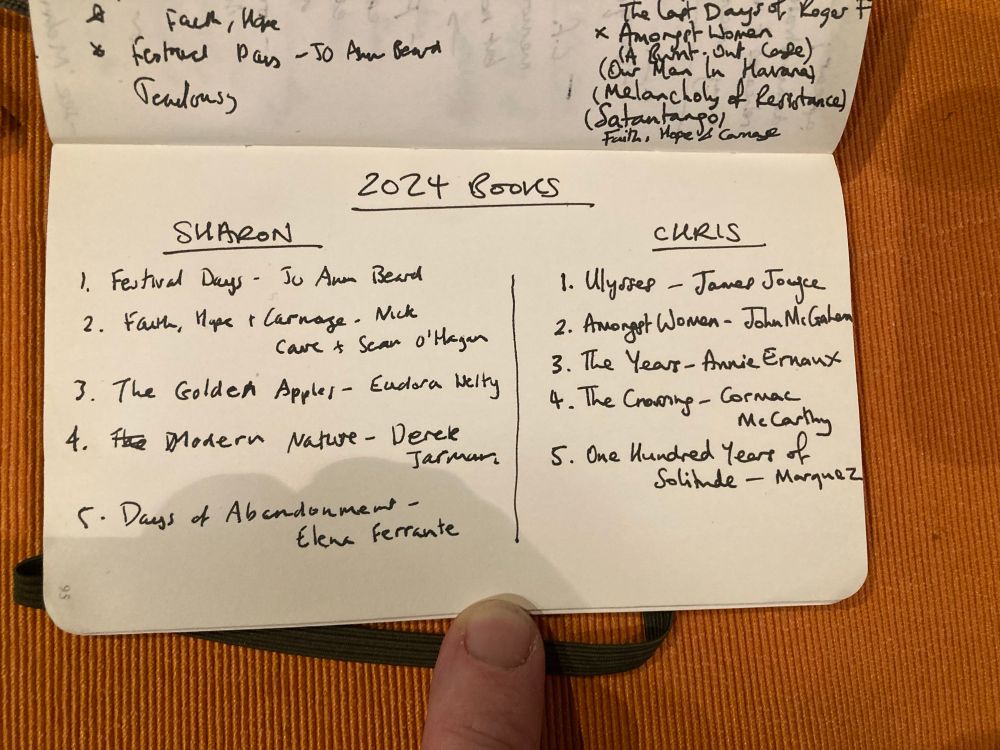 Faith, Hope
x Festival Days - Jo Ann Beard
Jealousy
The Last Days of Roger F
x Amongst Women
(A Burnt-Out Case)
(Our Man In Havana)
(Melancholy of Resistance)
(Satantango)
Faith, Hope & Carnage
2024 BOOKS
SHARON
1. Festival Days - Jo Ann Beard
2. Faith, Hope + Carnage - Nick
Cave + Sean O'Hagan
3. The Golden Apples - Eudora Welty
4. Modern Nature - Derek
Jarman
5. Days of Abandonment -
Elena Ferrante
CHRIS
1. Ulysses - James Joyce
2. Amongst Women - John McGahern
3. The Years - Annie Ernaux
4. The Crossing - Cormac
McCarthy
5. One Hundred Years of
Solitude - Marquez
95